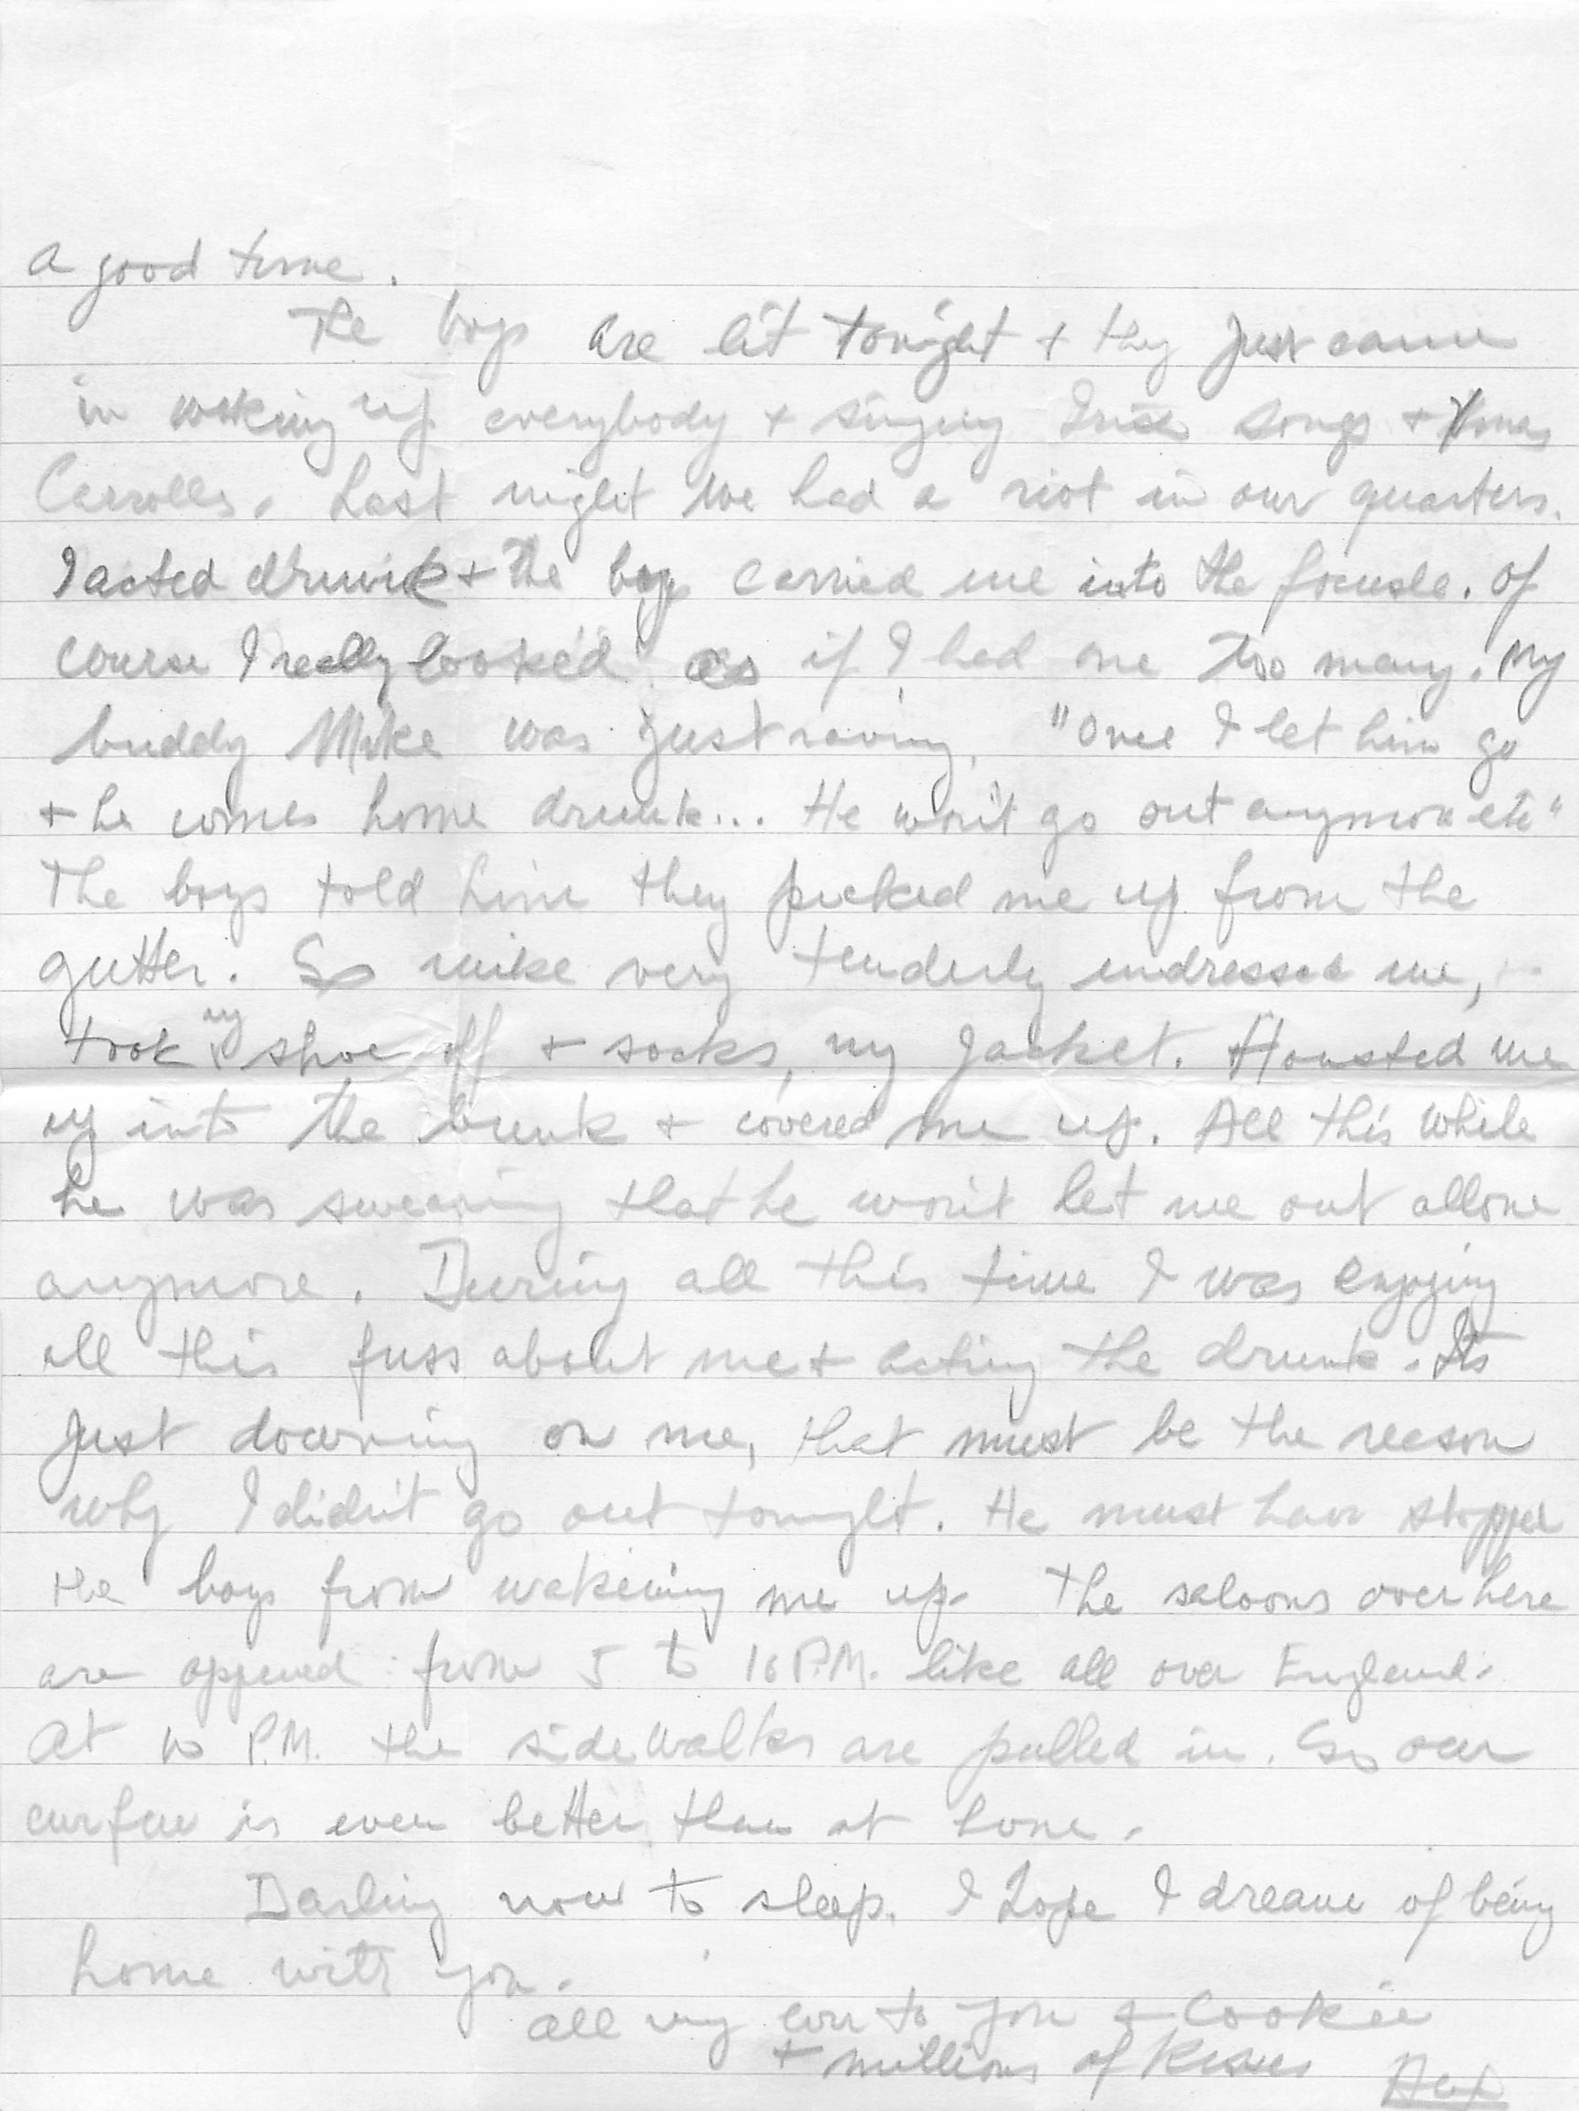 a good time.
The boys are lit tonight + they just came
in waking up everybody + singing Irish songs + Xmas
Carrolls. Last night we had a riot in our quarters.
I acted drunk + the boys carried me into the focusle. Of
course I really looked as if I had one too many. My
buddy Mike was just raving, "Once I let him go
+ he comes home drunk... He won't go out anymore etc"
The boys told him they picked me up from the
gutter. So mike very tenderly undressed me,
took my shoe off + socks, my jacket. Housted me
up into the bunk + covered me up. All this while
he was swearing that he won't let me out allone
anymore. During all this time I was enjoying
all this fuss about me + acting the drunk. Its
just dawning on me, that must be the reason
why I didn't go out tonight. He must have stopped
the boys from wakening me up. The saloons over here
are oppened from 5 to 10 P.M. like all over England.
At 10 P.M. the sidewalks are pulled in. So our
curfew is even better than at home.
Darling now to sleep. I hope I dream of being
home with you.
All my love to you + Cookie
+ millions of Kisses